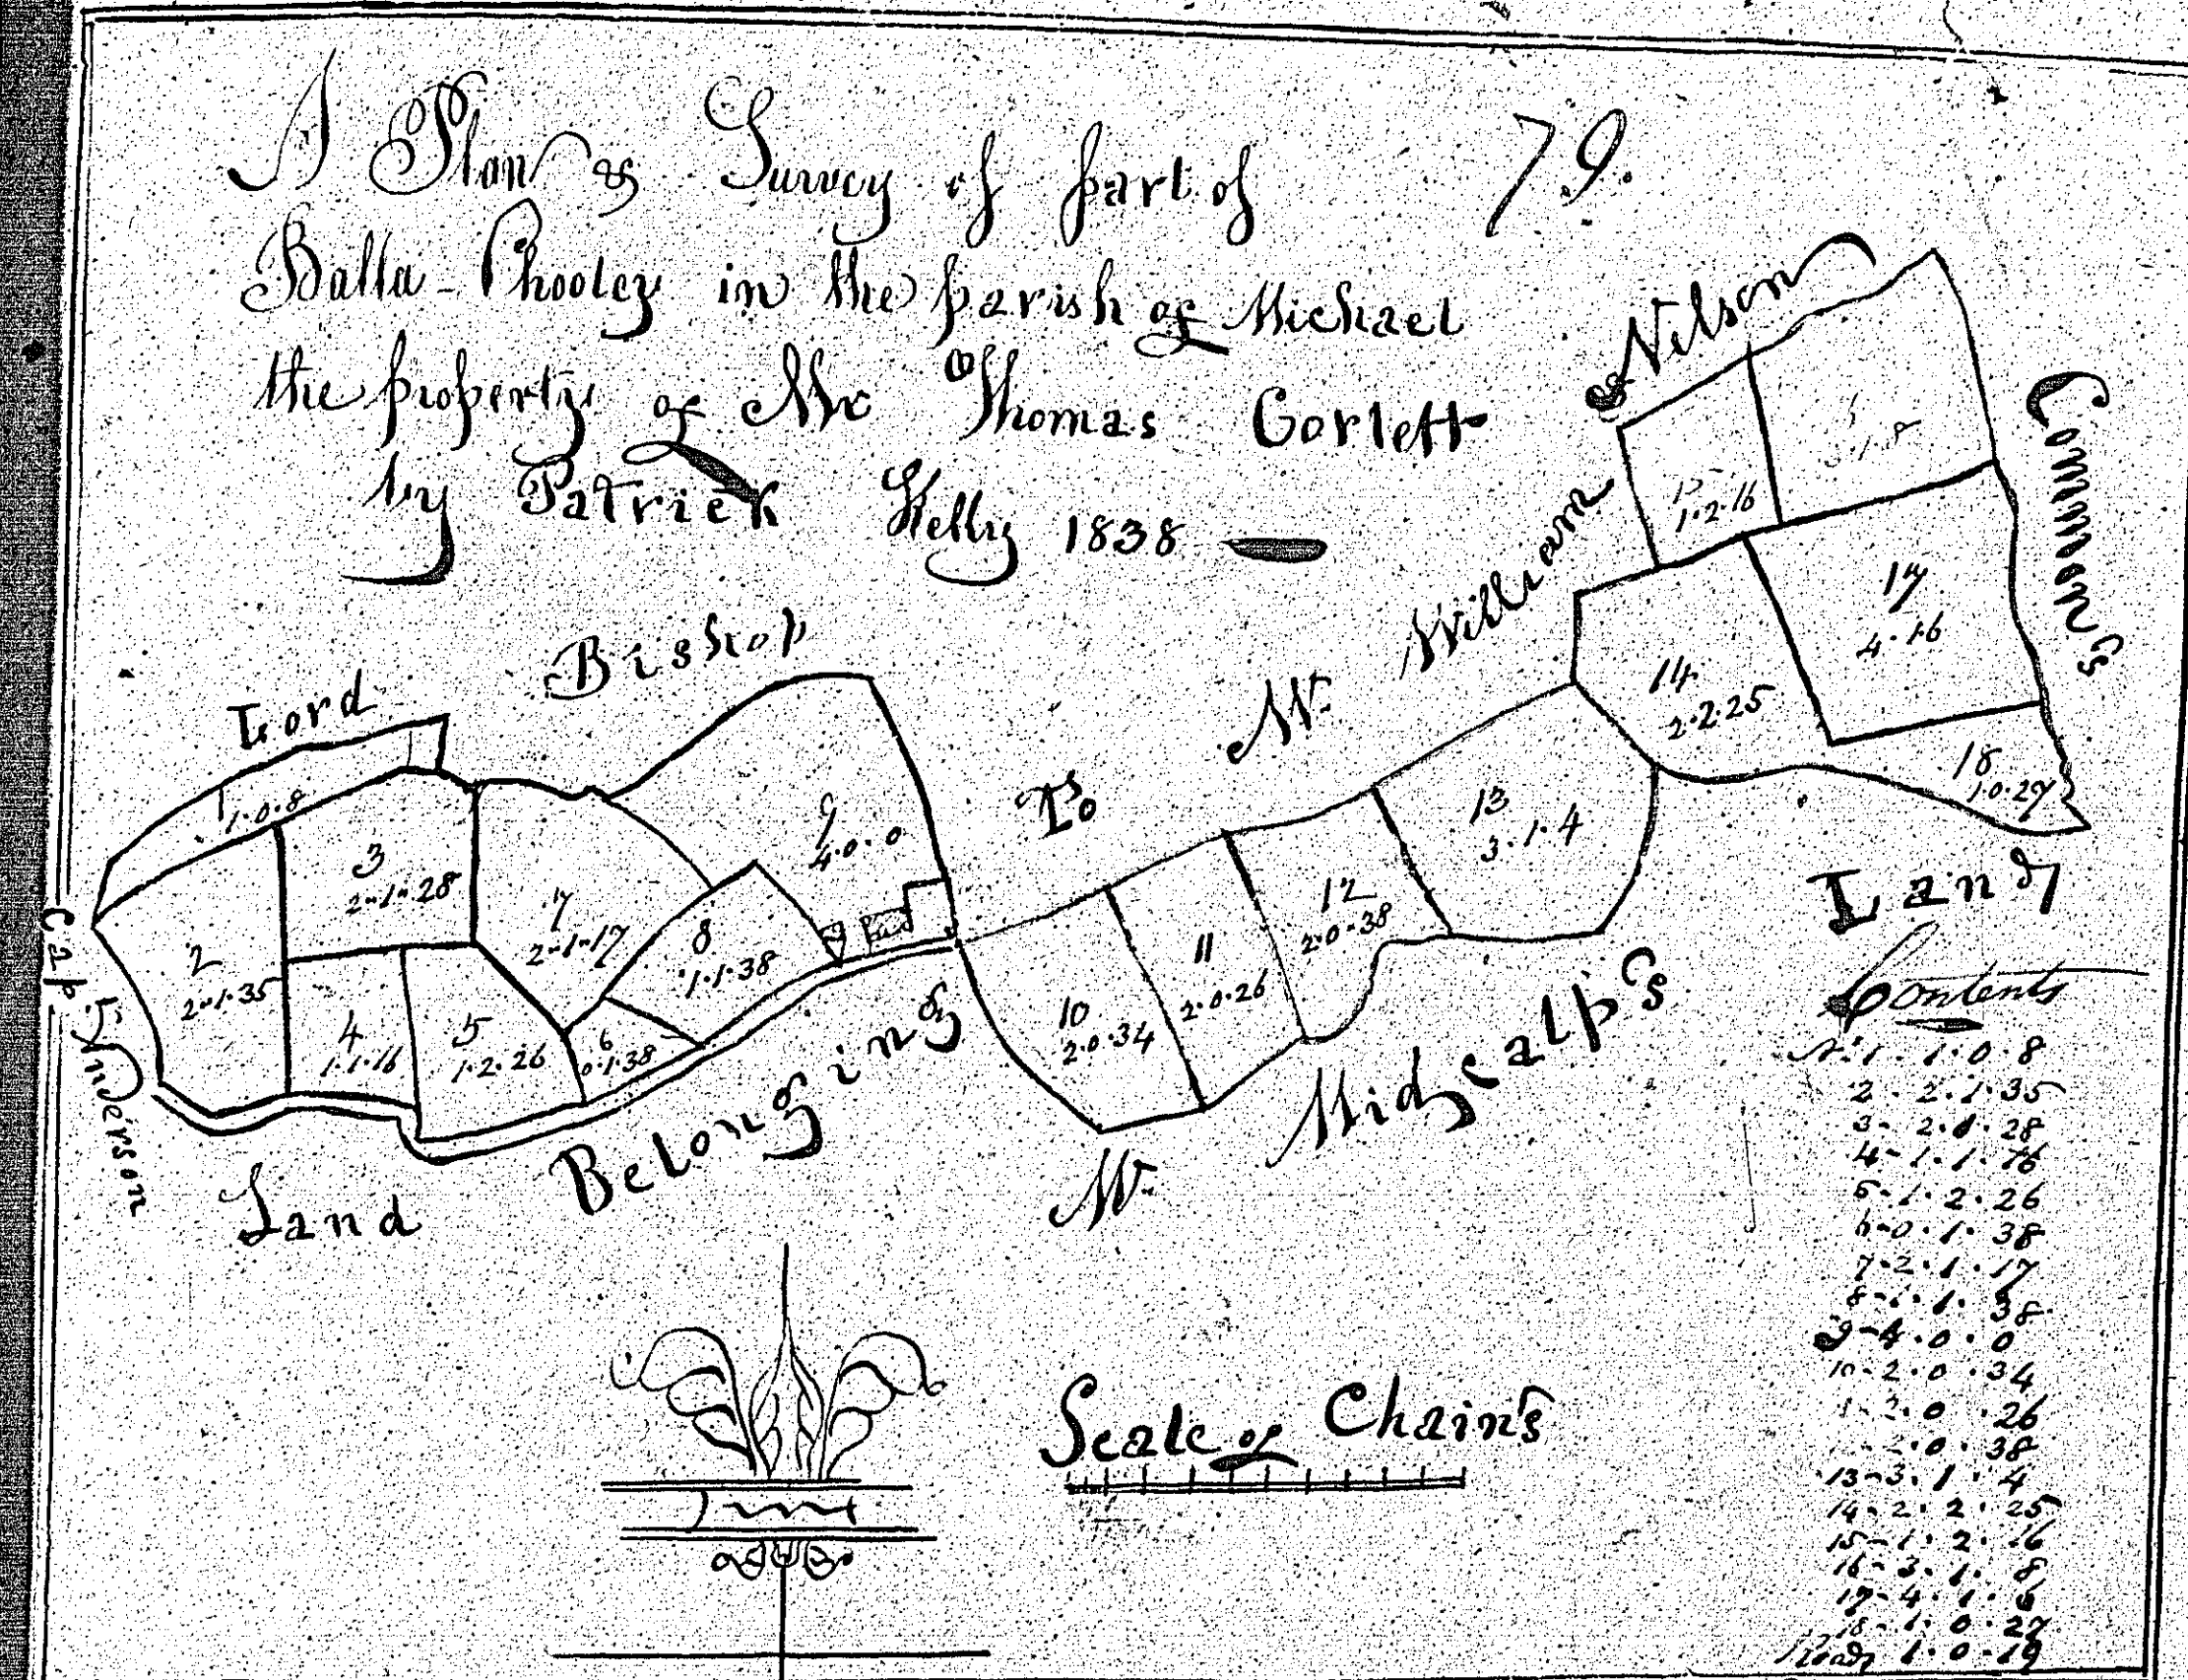 A Plan & Survey of part of
79.
Balla-Phooley in the parish of Michael
the property of Mr Thomas Corlett
by Patrick Kelly 1838
Lord Bishop
To Mr. William & Nelson
Commons
Cap. Enderson
Land Belonging
Mr. Midgcalps Land
1
1.0.8
2
2.1.35
3
2.1.28
4
1.1.16
5
1.2.26
6
0.1.38
7
2.1.17
8
1.1.38
9
4.0.0
10
2.0.34
11
2.0.26
12
2.0.38
13
3.1.4
14
2.2.25
15
1.2.16
17
4.1.6
18
1.0.27
Contents
No 1. 1.0.8
2. 2.1.35
3. 2.1.28
4-1.1.16
5-1.2.26
6-0.1.38
7.2.1.17
8-1.1.38
9-4.0.0
10-2.0.34
1-2.0.26
2.0.38
13-3.1.4
14-2.2.25
15-1.2.16
16-3.1.8
17-4.1.6
18-1.0.27
Road 1.0.19
Scale of Chain's